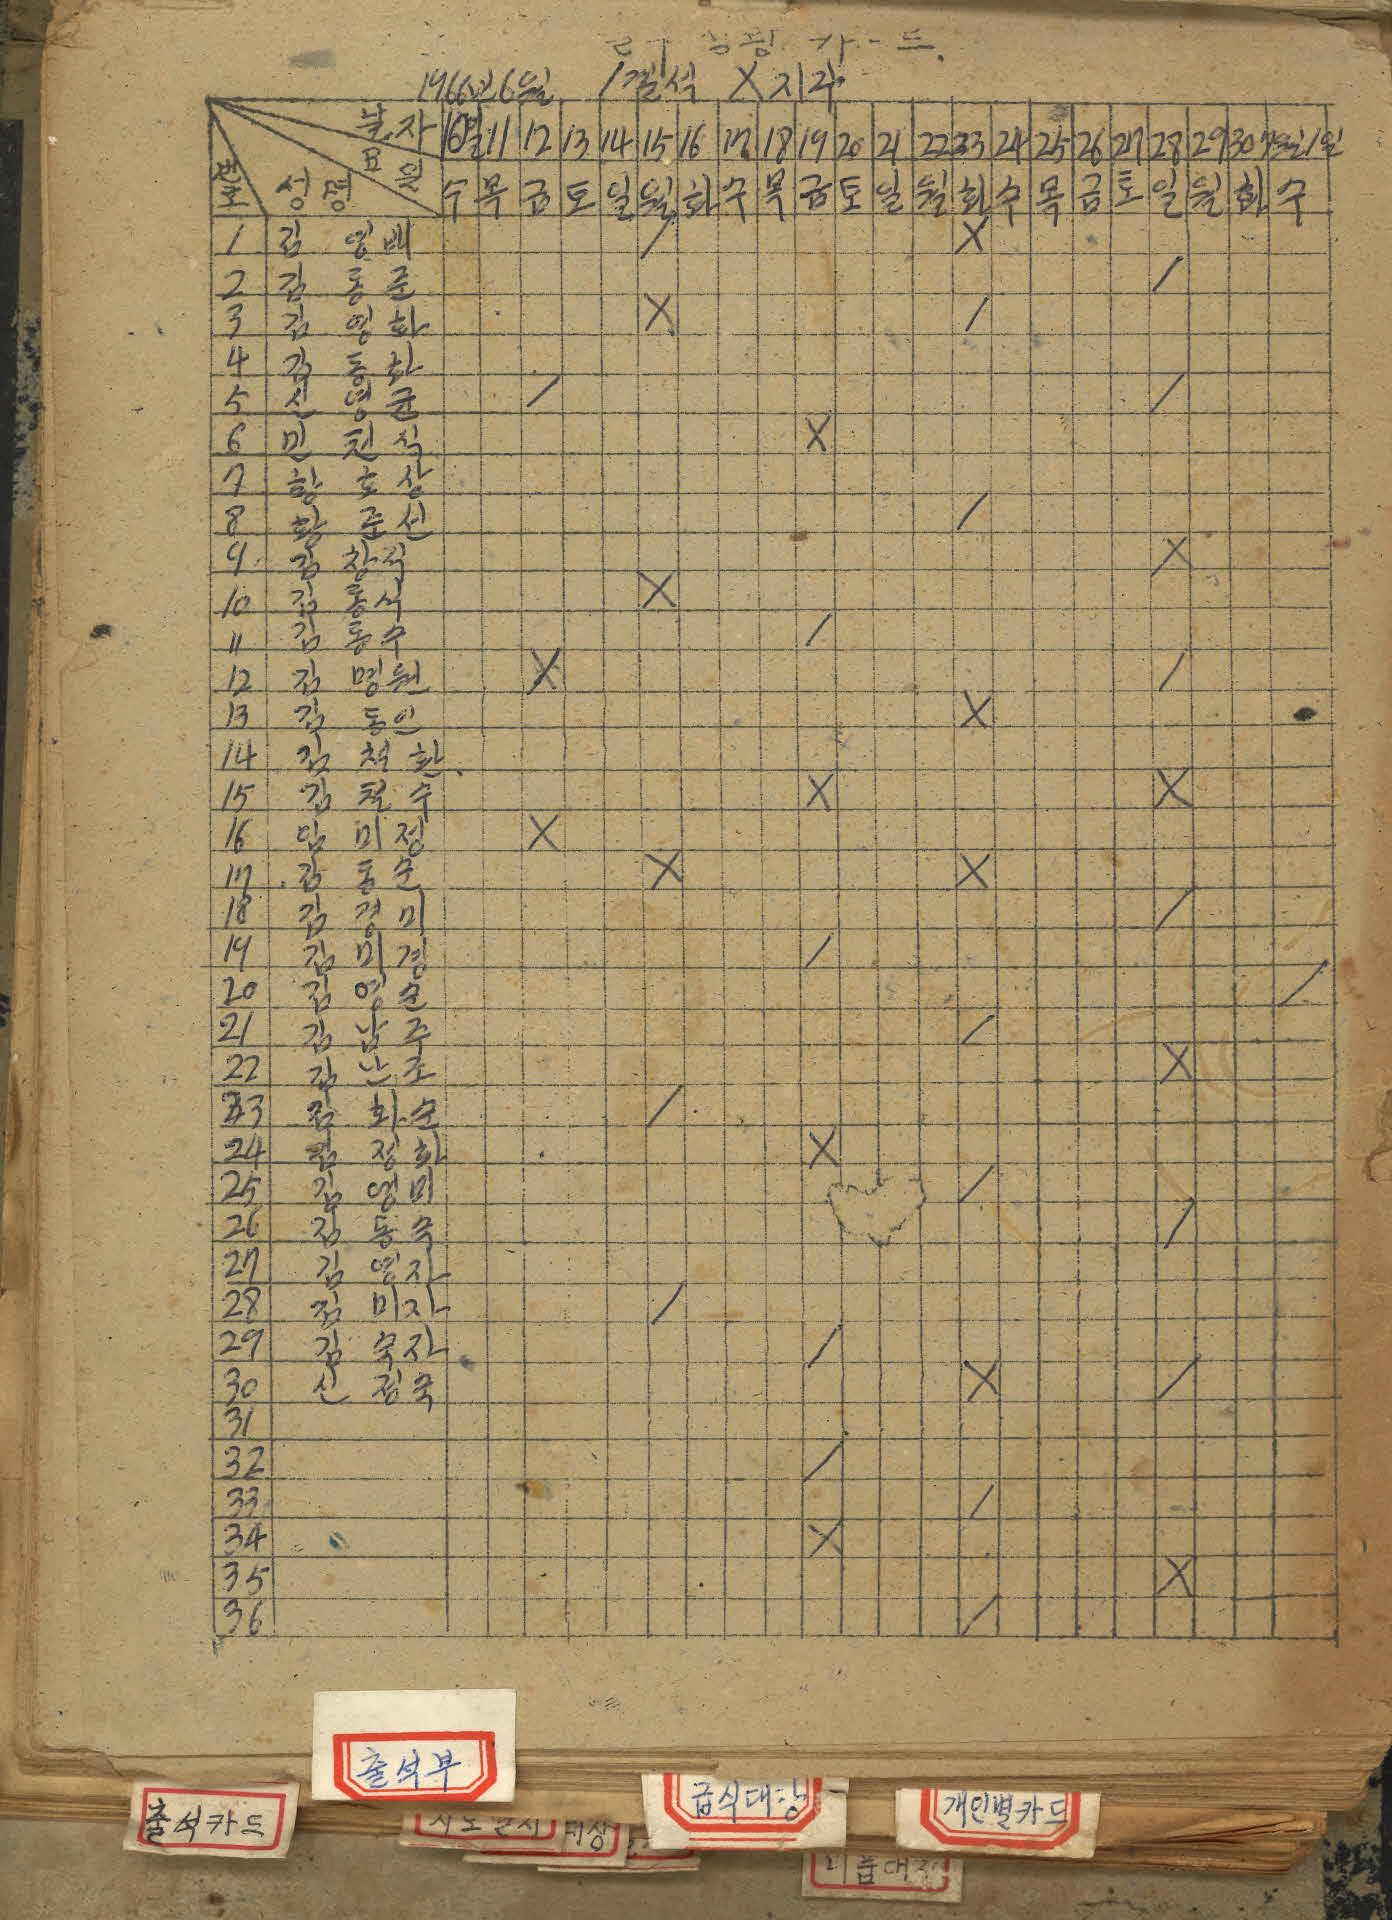 카-드.
1966년 6월 /결석 X지각
날자 10일 11 12 13 14 15 16 17 18 19 20 21 22 23 24 25 26 27 28 29 30 7월1일
번호 성명 요일 수 목 금 토 일 월 화 수 목 금 토 일 월 화 수 목 금 토 일 월 화 수
1 김영배 / X
2 김동준 /
3 김영화 X /
4 김동화
5 신영균 / /
6 민천식 X
7 황호상
8 황준선 /
9 김창석 X
10 김동석 X
11 김동수 /
12 김명원 X /
13 김동인 X
14 김척환
15 김철수 X X
16 임미정 X
17 김동순 X X
18 김경미 /
19 김미경 /
20 김영순 /
21 김남주 /
22 김난조 X
23 김화순 /
24 김정화 X
25 김영미 /
26 김동숙 /
27 김영자
28 김미자 /
29 김숙자 /
30 신정숙 X /
31
32 /
33 /
34 X
35 X
36 /
출석부
출석카드
급식대상
개인별카드
대상